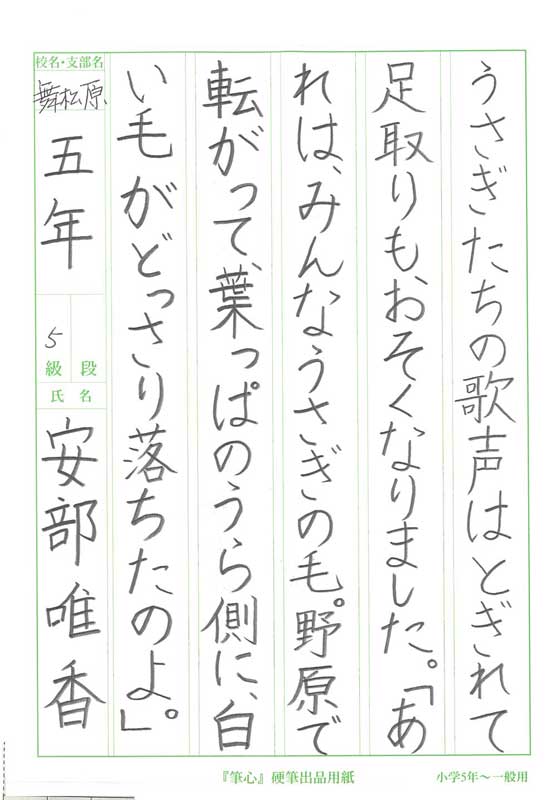 うさぎたちの歌声はとぎれて
足取りもおそくなりました。「あ
れは、みんなうさぎの毛。野原で
転がって、葉っぱのうら側に、白
い毛がどっさり落ちたのよ」。
校名・支部名
舞松原
五年
5
級 段
氏名
安部唯香
『筆心』硬筆出品用紙
小学5年〜一般用